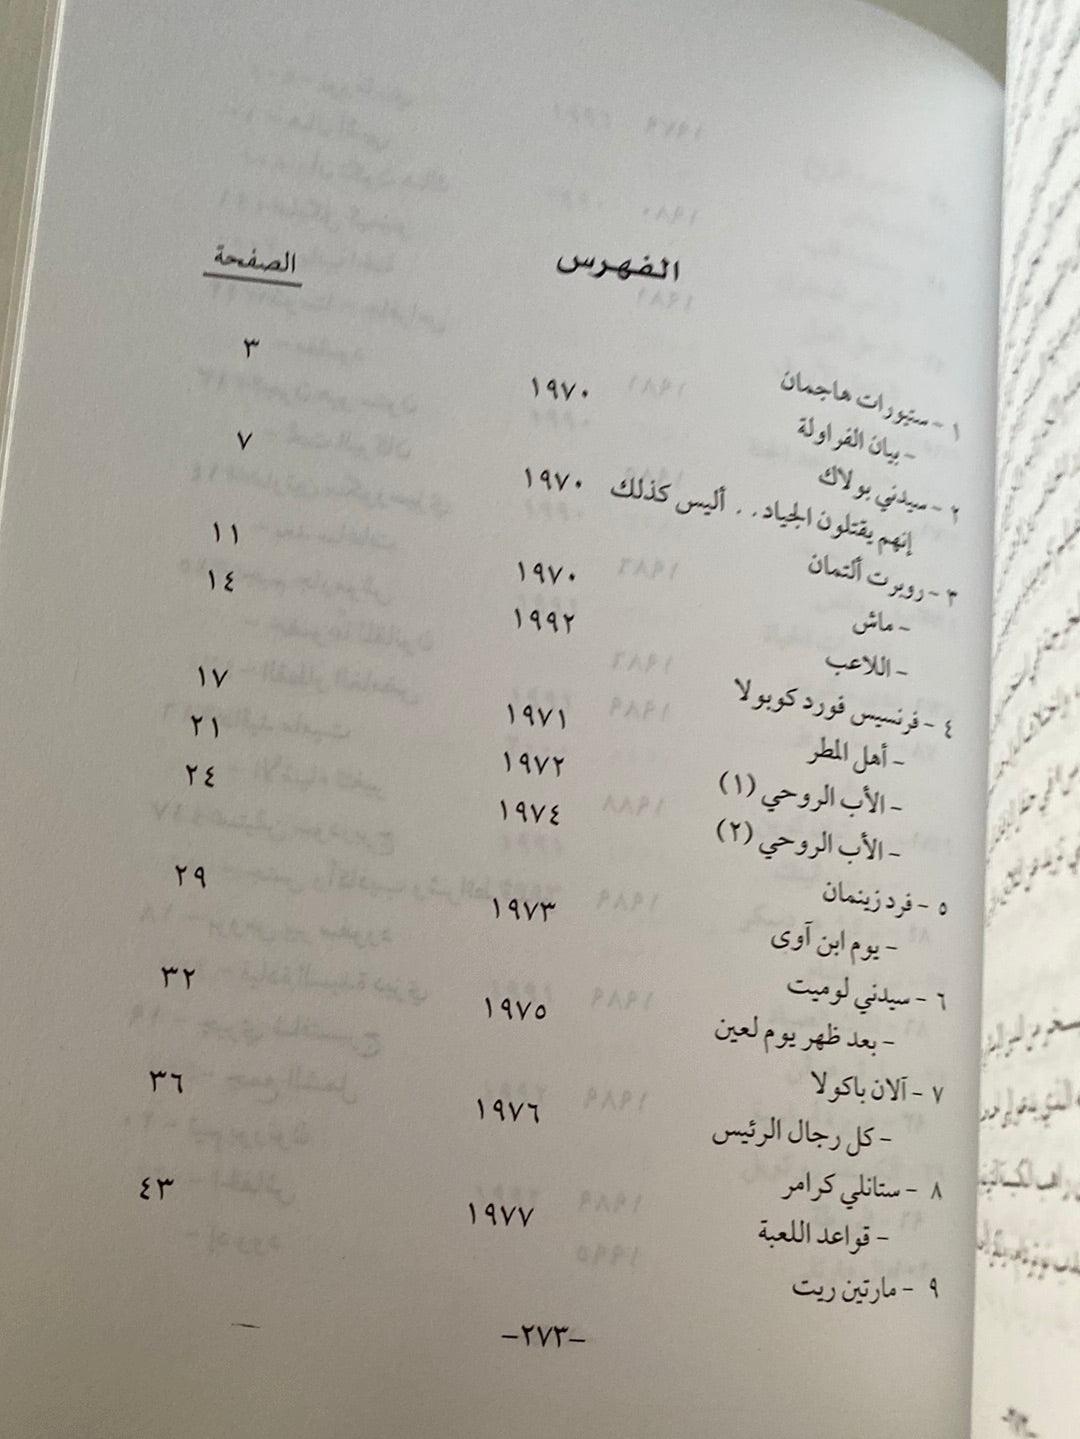 الفهرس الصفحة
١ - ستيورات هاجمان
- بيان الفراولة ١٩٧٠ ٣
٢ - سيدني بولاك
إنهم يقتلون الجياد.. أليس كذلك ١٩٧٠ ٧
٣ - روبرت ألتمان
- ماش ١٩٧٠ ١١
- اللاعب ١٩٩٢ ١٤
٤ - فرنسيس فورد كوبولا
- أهل المطر ١٩٧١ ١٧
- الأب الروحي (١) ١٩٧٢ ٢١
- الأب الروحي (٢) ١٩٧٤ ٢٤
٥ - فرد زينمان
- يوم ابن آوى ١٩٧٣ ٢٩
٦ - سيدني لوميت
- بعد ظهر يوم لعين ١٩٧٥ ٣٢
٧ - آلان باكولا
- كل رجال الرئيس ١٩٧٦ ٣٦
٨ - ستانلي كرامر
- قواعد اللعبة ١٩٧٧ ٤٣
٩ - مارتين ريت
-٢٧٣-